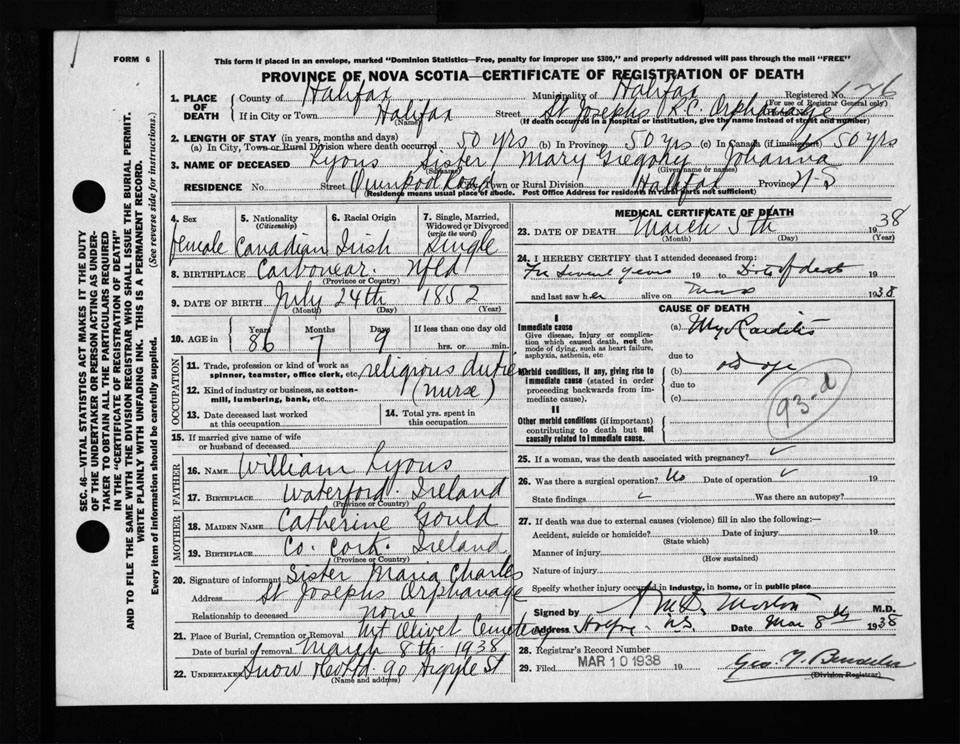 FORM 6
This form if placed in an envelope, marked "Dominion Statistics—Free, penalty for improper use $300," and properly addressed will pass through the mail "FREE"
PROVINCE OF NOVA SCOTIA—CERTIFICATE OF REGISTRATION OF DEATH
1. PLACE OF DEATH County of Halifax Municipality of Halifax Registered No. 126
(Name) (For use of Registrar General only)
If in City or Town Halifax Street St Josephs R.C. Orphanage
(If death occurred in a hospital or institution, give the name instead of street and number)
2. LENGTH OF STAY (in years, months and days)
(a) In City, Town or Rural Division where death occurred 50 yrs (b) In Province 50 yrs (c) In Canada (if immigrant) 50 yrs
3. NAME OF DECEASED Lyons Sister Mary Gregory Johanna
(Surname) (Given name or names)
RESIDENCE No. Street Quinpool Road City, Town or Rural Division Halifax Province N-S
(Residence means usual place of abode. Post Office Address for residents in rural parts not sufficient)
4. Sex female
5. Nationality (Citizenship) Canadian
6. Racial Origin Irish
7. Single, Married, Widowed or Divorced (write the word) Single
8. BIRTHPLACE Carbonear. Nfld
(Province or Country)
9. DATE OF BIRTH July 24th 1852
(Month) (Day) (Year)
10. AGE in Years 86 Months 7 Days 9 If less than one day old
hrs. or min.
OCCUPATION
11. Trade, profession or kind of work as spinner, teamster, office clerk, etc. religious duties
(nurse)
12. Kind of industry or business, as cotton-mill, lumbering, bank, etc.
13. Date deceased last worked at this occupation
14. Total yrs. spent in this occupation
15. If married give name of wife or husband of deceased
FATHER
16. NAME William Lyons
17. BIRTHPLACE Waterford. Ireland
(Province or Country)
MOTHER
18. MAIDEN NAME Catherine Gould
19. BIRTHPLACE Co. Cork. Ireland
(Province or Country)
20. Signature of informant Sister Maria Charles
Address St Josephs Orphanage
Relationship to deceased none
21. Place of Burial, Cremation or Removal Mt Olivet Cemetery
Date of burial or removal March 8th 1938
22. UNDERTAKER Snow & Co Ltd. 90 Argyle St
(Name and address)
MEDICAL CERTIFICATE OF DEATH
23. DATE OF DEATH March 5th 1938
(Month) (Day) (Year)
24. I HEREBY CERTIFY that I attended deceased from:
For several years 19 to Date of death 19
and last saw her alive on 1938
CAUSE OF DEATH
I
Immediate cause
Give disease, injury or complication which caused death, not the mode of dying, such as heart failure, asphyxia, asthenia, etc
(a) Myocarditis
due to
Morbid conditions, if any, giving rise to immediate cause (stated in order proceeding backwards from immediate cause).
(b) old age
due to
(c)
93-d
II
Other morbid conditions (if important) contributing to death but not causally related to immediate cause.
25. If a woman, was the death associated with pregnancy? ✓
26. Was there a surgical operation? No Date of operation ✓ 19
State findings ✓ Was there an autopsy?
27. If death was due to external causes (violence) fill in also the following:—
Accident, suicide or homicide? Date of injury 19
(State which)
Manner of injury
(How sustained)
Nature of injury
Specify whether injury occurred in industry, in home, or in public place
Signed by Morton M.D.
Address Halifax N.S. Date Mar 8th 1938
28. Registrar's Record Number
29. Filed MAR 10 1938 19
(Division Registrar)
SEC. 46—VITAL STATISTICS ACT MAKES IT THE DUTY
OF THE UNDERTAKER OR PERSON ACTING AS UNDER-
TAKER TO OBTAIN ALL THE PARTICULARS REQUIRED
IN THE "CERTIFICATE OF REGISTRATION OF DEATH"
AND TO FILE THE SAME WITH THE DIVISION REGISTRAR WHO SHALL ISSUE THE BURIAL PERMIT.
WRITE PLAINLY WITH UNFADING INK. THIS IS A PERMANENT RECORD.
Every item of information should be carefully supplied. (See reverse side for instructions.)